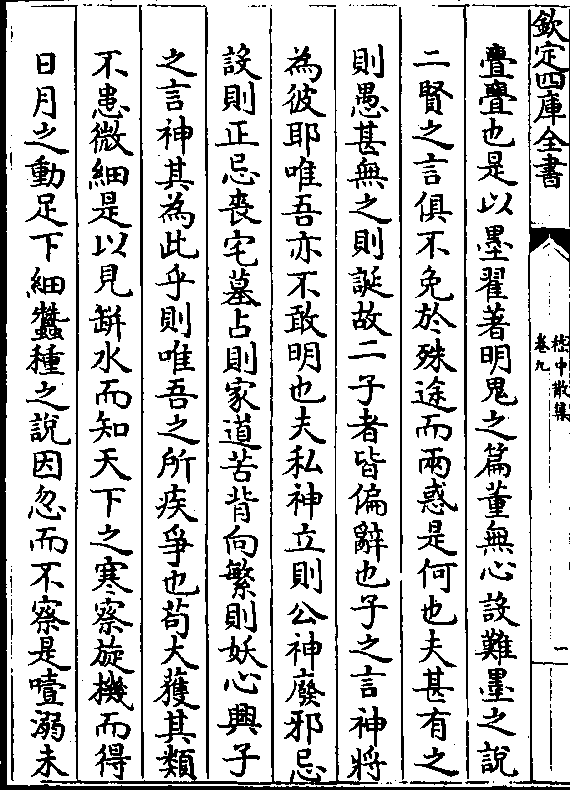 欽定四庫全書
嵇中散集
卷九
一
亹亹也是以墨翟著明鬼之篇董無心設難墨之說
二賢之言俱不免於殊途而兩惑是何也夫甚有之
則愚甚無之則誕故二子者皆偏辭也子之言神將
為彼耶唯吾亦不敢明也夫私神立則公神廢邪忌
設則正忌喪宅墓占則家道苦背向繁則妖心興子
之言神其為此乎則唯吾之所疾爭也苟大獲其類
不患微細是以見缾水而知天下之寒察旋機而得
日月之動足下細蠶種之說因忽而不察是噎溺未